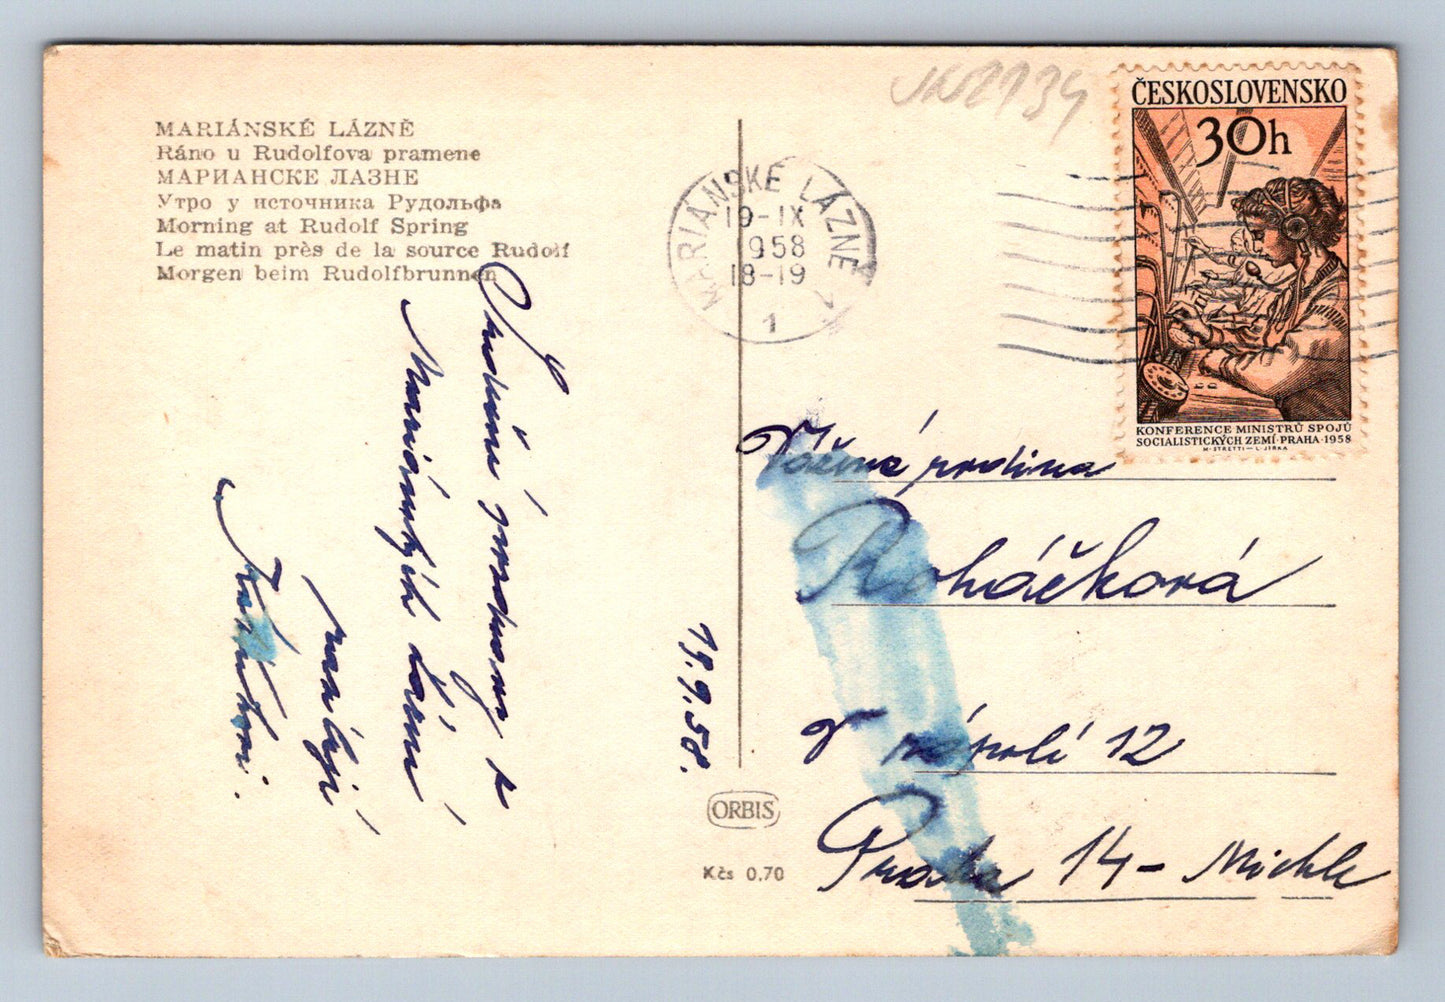 MARIÁNSKÉ LÁZNĚ
Ráno u Rudolfova pramene
МАРИАНСКЕ ЛАЗНЕ
Утро у источника Рудольфа
Morning at Rudolf Spring
Le matin près de la source Rudolf
Morgen beim Rudolfbrunnen
Srdečné pozdravy z
Mariánských Lázní
19.9.58.
ORBIS
Kčs 0,70
MARIÁNSKÉ LÁZNĚ 1
19-IX
1958
18-19
1
ČESKOSLOVENSKO
30h
KONFERENCE MINISTRŮ SPOJŮ
SOCIALISTICKÝCH ZEMÍ·PRAHA·1958
M·STRETTI—L·JIRKA
Vážená rodina
Roháčková
V zápolí 12
Praha 14 - Michle